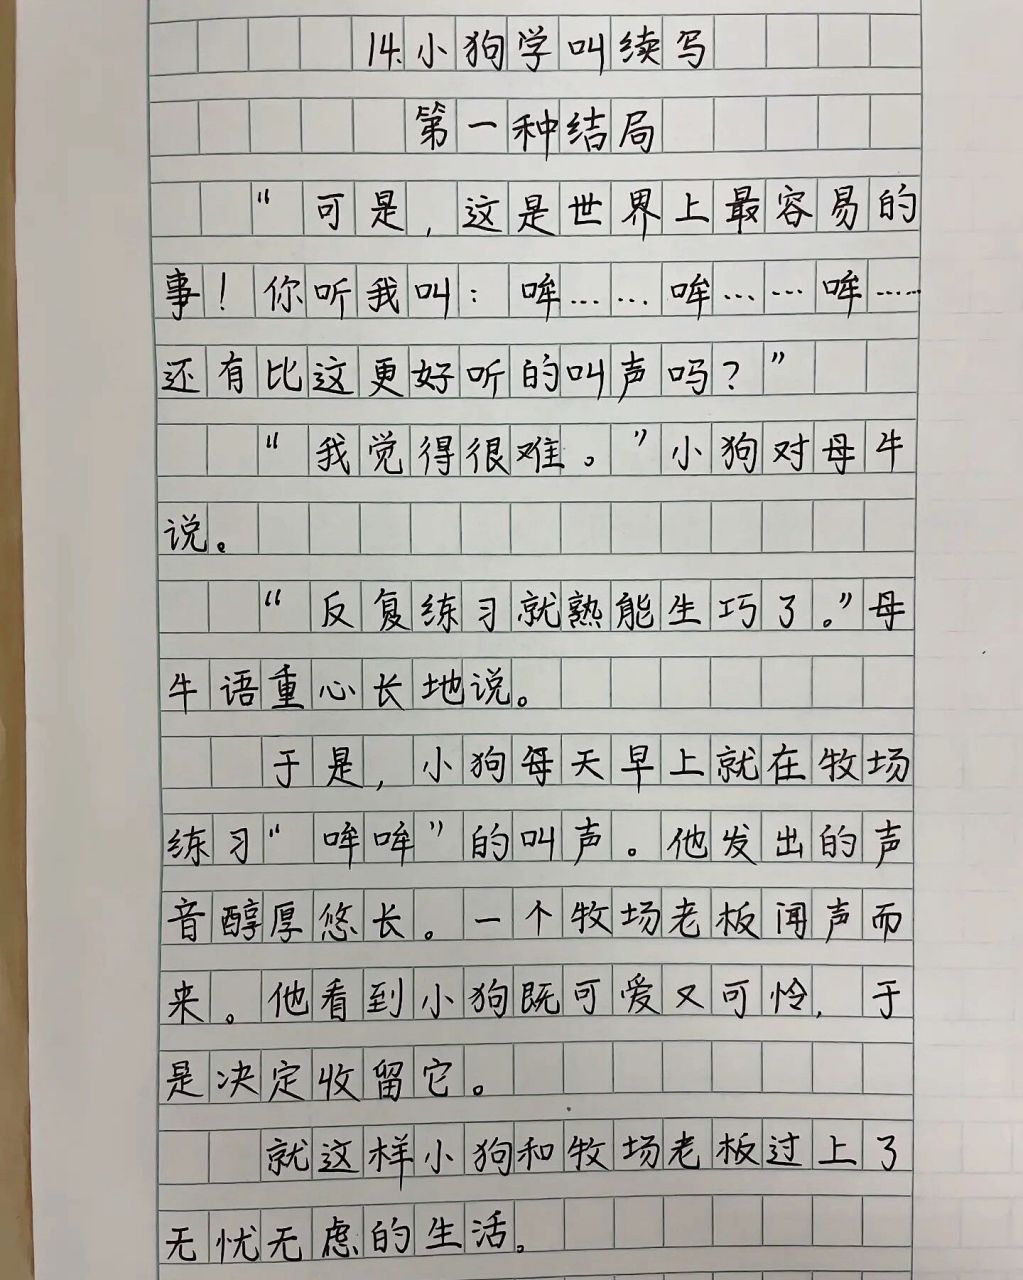 14.小狗学叫续写
第一种结局
“可是,这是世界上最容易的
事!你听我叫:哞……哞……哞……
还有比这更好听的叫声吗?”
“我觉得很难。”小狗对母牛
说。
“反复练习就熟能生巧了。”母
牛语重心长地说。
于是,小狗每天早上就在牧场
练习“哞哞”的叫声。他发出的声
音醇厚悠长。一个牧场老板闻声而
来。他看到小狗既可爱又可怜,于
是决定收留它。
就这样小狗和牧场老板过上了
无忧无虑的生活。